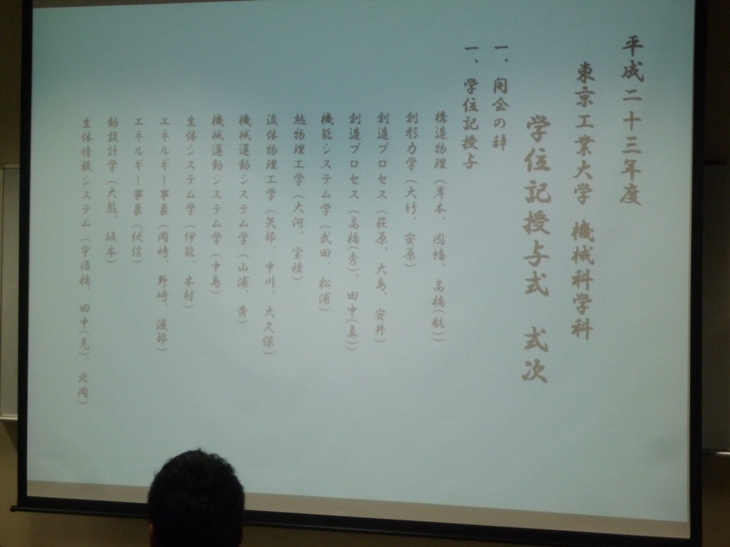 平成二十三年度
東京工業大学 機械科学科
学位記授与式 式次
一、開会の辞
一、学位記授与
構造物理（岸本、因幡、高橋(航)）
創形力学（大竹、安原）
創造プロセス（萩原、大島、安井）
創造プロセス（高橋(秀)、田中(真)）
機能システム学（武田、松浦）
熱物理工学（大河、宝積）
流体物理工学（矢部、中川、大久保）
機械運動システム学（山浦、黄）
機械運動システム学（中島）
生体システム学（伊能、木村）
エネルギー事象（岡崎、野崎、渡部）
エネルギー事象（伏信）
動設計学（大熊、坂本）
生体情報システム（宇治橋、田中(克)、北岡）